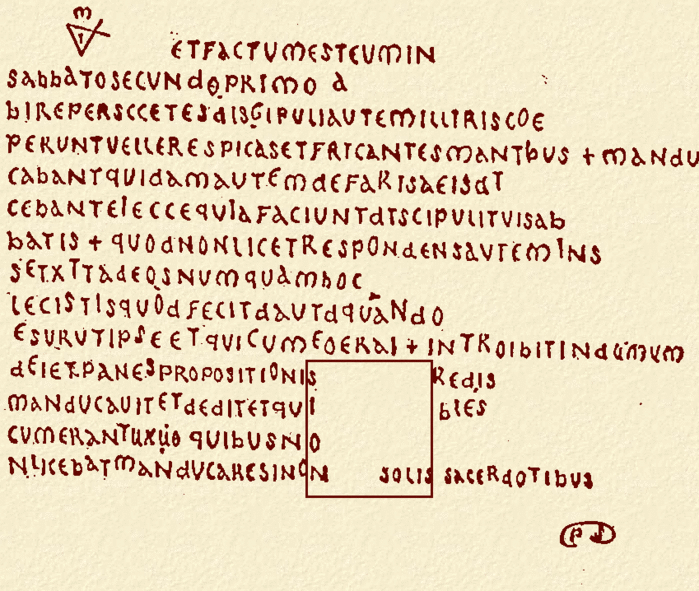 ETFACTUMESTEUMIN
SABBATOSECUNDOPRIMO A
BIREPERSCCETESDISGIPULIAUTEMILLIRISCOE
PERUNTUELLERESPICASETFRICANTESMANTBUS + MANDU
CABANTQUIDAMAUTEMDEFARISAEISDT
CEBANTEIECCEQUIAFACIUNTDTSCIPULITUISAB
BATIS + QUODNONLICETRESPONDENSAUTEMINS
SETXTTADEOSNUMQUAMHOC
LECISTISQUODFECITDAUTDQUANDO
ESURUTIPSEETQUICUMEOERAI + INTROIBITINDUMUM
DEIETPANESPROPOSITIONIS REDIS
MANDUCAUITETDEDITETQUI BLES
CUMERANTUXUO QUIBUSNO
NLICEBATMANDUCARESINON SOLIS SACERDOTIBUS
PS